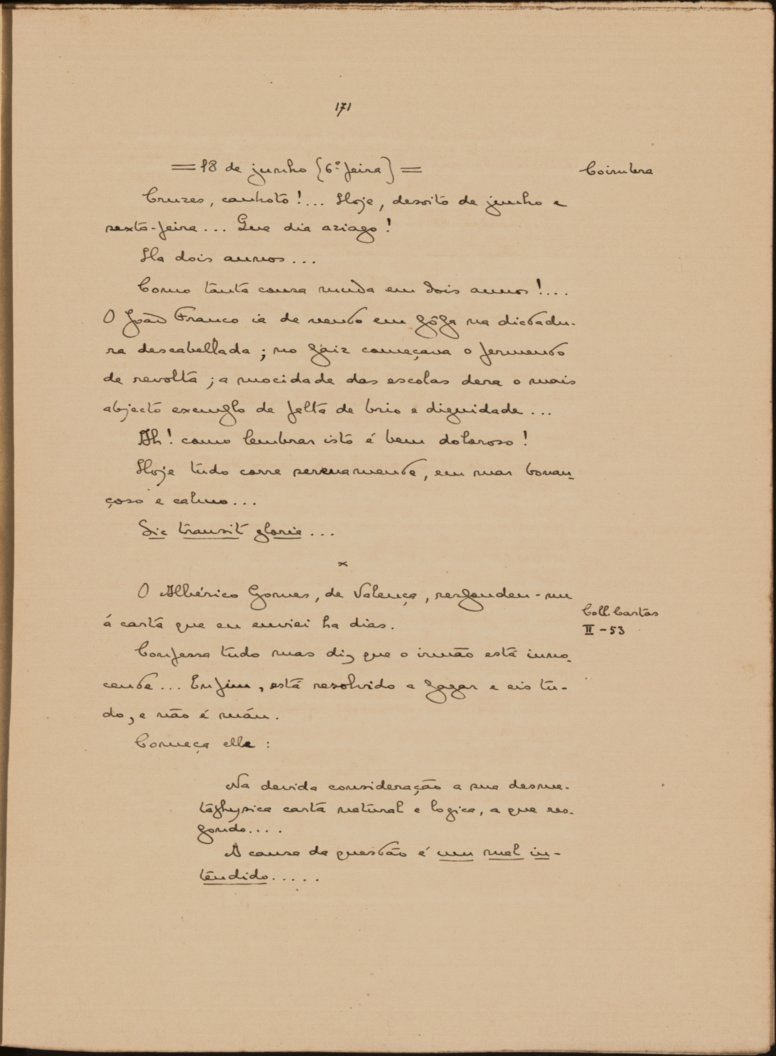 171
= 18 de junho (6ª feira) =
Coimbra
Cruzes, canhoto!... Hoje, desoito de junho e
sexta-feira... Que dia aziago!
Ha dois annos...
Como tanta cousa muda em dois annos!...
O João Franco ia de vento em pôpa na dictadu-
ra descabellada; no paiz começava o fermento
de revolta; a mocidade das escolas dera o mais
abjecto exemplo de falta de brio e dignidade...
Ah! como lembrar isto é bem doloroso!
Hoje tudo corre serenamente, em mar bonan-
çoso e calmo...
Sic transit gloria...
×
O Albérico Gomes, de Valença, respondeu-me
á carta que eu enviei ha dias.
Coll. Cartas
II-53
Confessa tudo mas diz que o irmão está inno-
cente... Enfim, está resolvido a pagar e eis tu-
do, e não é máu.
Começa elle:
Na devida consideração a sua desme-
taphysica carta natural e logica, a que res-
pondo....
A causa da questão é um mal in-
tendido.....